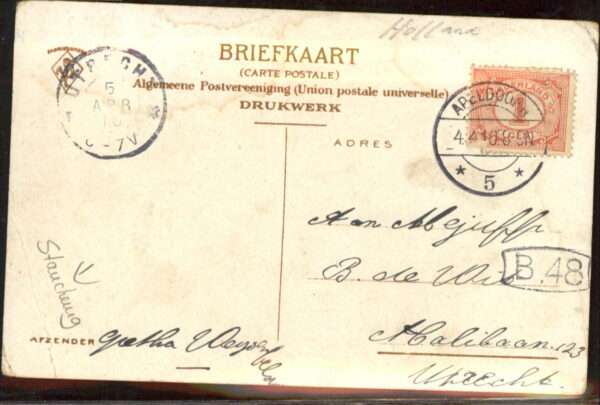 Holland
BRIEFKAART
(CARTE POSTALE)
Algemeene Postvereeniging (Union postale universelle)
DRUKWERK
UTRECHT
5
APR
10
6-7V
APELDOORN
4.4.10.8-9N
* 5 *
ADRES
Aan Mejuffr
B. de Wit
B.48
Malibaan 123
Utrecht.
AFZENDER
gretha